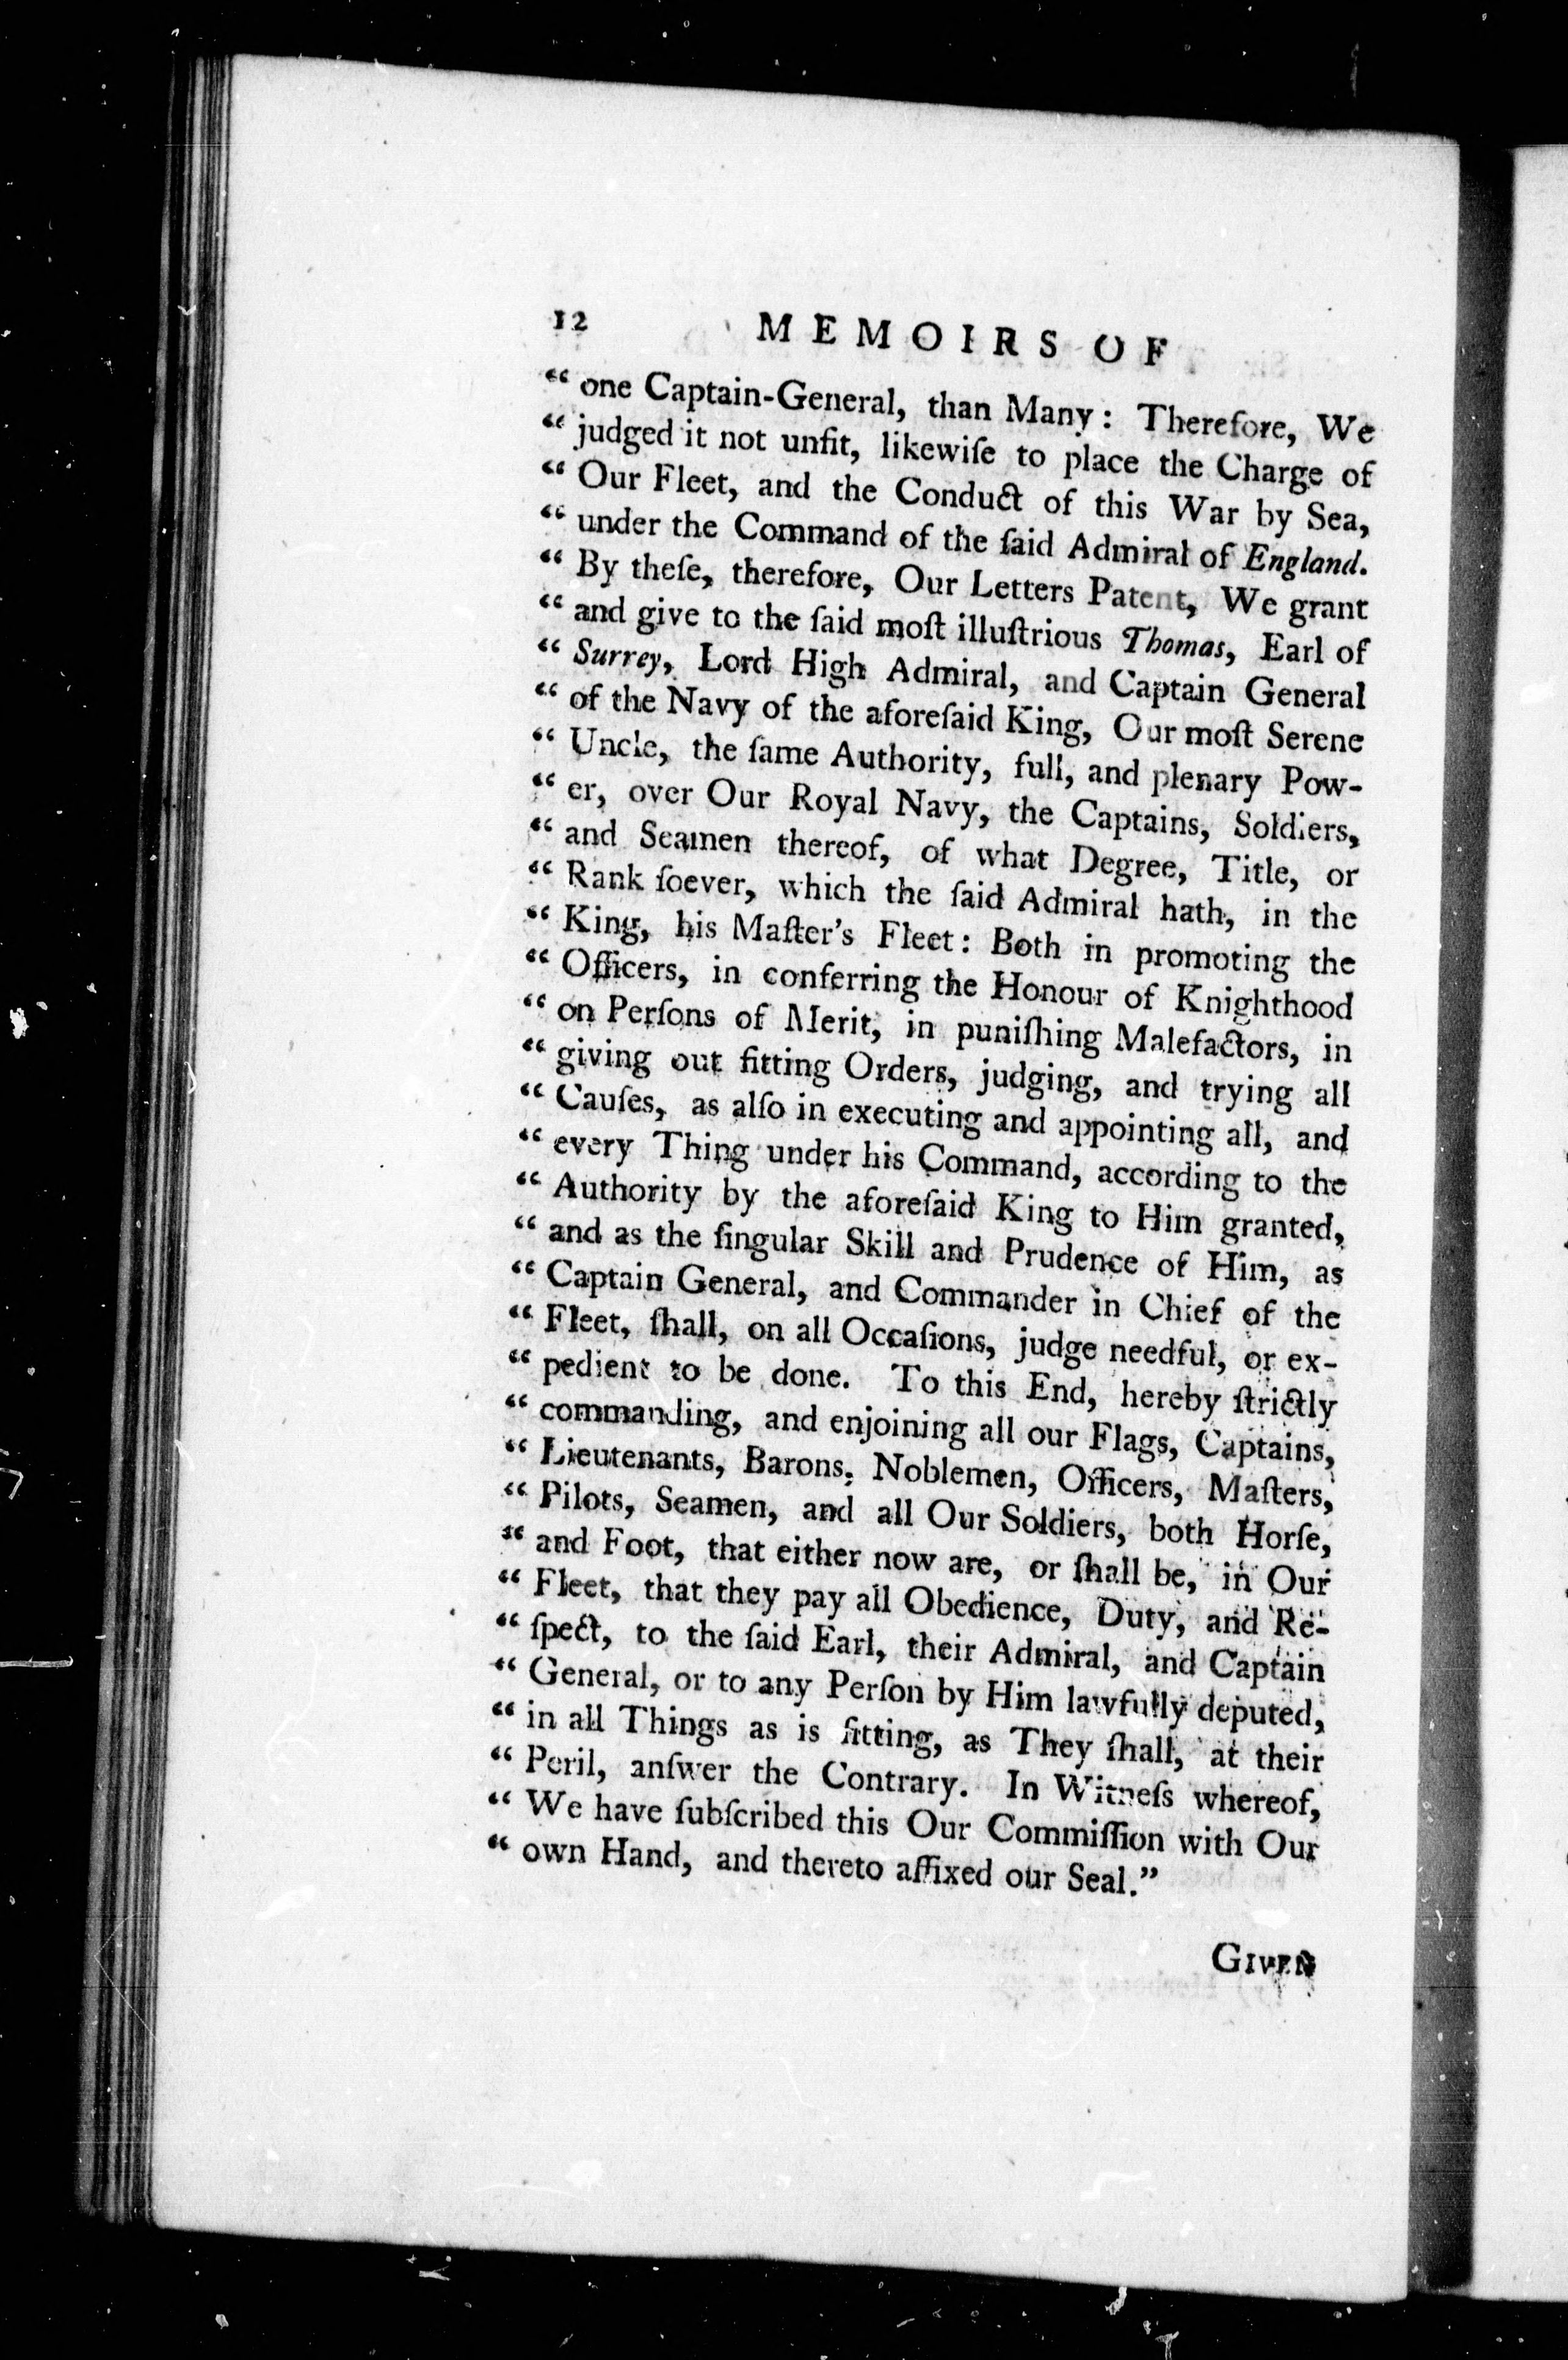 12 MEMOIRS OF
“ one Captain-General, than Many: Therefore, We
“ judged it not unfit, likewiſe to place the Charge of
“ Our Fleet, and the Conduct of this War by Sea,
“ under the Command of the ſaid Admiral of England.
“ By theſe, therefore, Our Letters Patent, We grant
“ and give to the ſaid moſt illuſtrious Thomas, Earl of
“ Surrey, Lord High Admiral, and Captain General
“ of the Navy of the aforeſaid King, Our moſt Serene
“ Uncle, the ſame Authority, full, and plenary Pow-
“ er, over Our Royal Navy, the Captains, Soldiers,
“ and Seamen thereof, of what Degree, Title, or
“ Rank ſoever, which the ſaid Admiral hath, in the
“ King, his Maſter’s Fleet: Both in promoting the
“ Officers, in conferring the Honour of Knighthood
“ on Perſons of Merit, in puniſhing Malefactors, in
“ giving out fitting Orders, judging, and trying all
“ Cauſes, as alſo in executing and appointing all, and
“ every Thing under his Command, according to the
“ Authority by the aforeſaid King to Him granted,
“ and as the ſingular Skill and Prudence of Him, as
“ Captain General, and Commander in Chief of the
“ Fleet, ſhall, on all Occaſions, judge needful, or ex-
“ pedient to be done. To this End, hereby ſtrictly
“ commanding, and enjoining all our Flags, Captains,
“ Lieutenants, Barons, Noblemen, Officers, Maſters,
“ Pilots, Seamen, and all Our Soldiers, both Horſe,
“ and Foot, that either now are, or ſhall be, in Our
“ Fleet, that they pay all Obedience, Duty, and Re-
“ ſpect, to the ſaid Earl, their Admiral, and Captain
“ General, or to any Perſon by Him lawfully deputed,
“ in all Things as is fitting, as They ſhall, at their
“ Peril, anſwer the Contrary. In Witneſs whereof,
“ We have ſubſcribed this Our Commiſſion with Our
“ own Hand, and thereto affixed our Seal.”
GIVEN